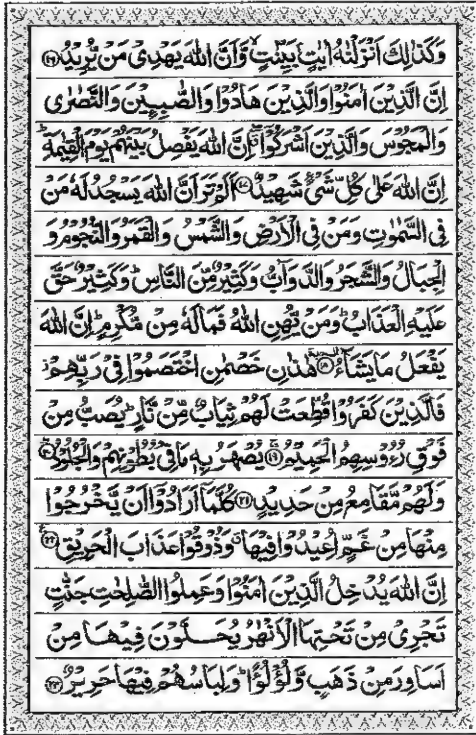 وَكَذٰلِكَ اَنْزَلْنٰهُ اٰيٰتٍۭ بَيِّنٰتٍ ۙ وَّاَنَّ اللّٰهَ يَهْدِىْ مَنْ يُّرِيْدُ ۝۱۶
اِنَّ الَّذِيْنَ اٰمَنُوْا وَالَّذِيْنَ هَادُوْا وَالصّٰبِـِٕيْنَ وَالنَّصٰرٰى
وَالْمَجُوْسَ وَالَّذِيْنَ اَشْرَكُوْۤا ۖ اِنَّ اللّٰهَ يَفْصِلُ بَيْنَهُمْ يَوْمَ الْقِيٰمَةِ ؕ
اِنَّ اللّٰهَ عَلٰى كُلِّ شَىْءٍ شَهِيْدٌ ۝۱۷ اَلَمْ تَرَ اَنَّ اللّٰهَ يَسْجُدُ لَهٗ مَنْ
فِى السَّمٰوٰتِ وَمَنْ فِى الْاَرْضِ وَالشَّمْسُ وَالْقَمَرُ وَالنُّجُوْمُ وَ
الْجِبَالُ وَالشَّجَرُ وَالدَّوَآبُّ وَكَثِيْرٌ مِّنَ النَّاسِ ؕ وَكَثِيْرٌ حَقَّ
عَلَيْهِ الْعَذَابُ ؕ وَمَنْ يُّهِنِ اللّٰهُ فَمَا لَهٗ مِنْ مُّكْرِمٍ ؕ اِنَّ اللّٰهَ
يَفْعَلُ مَا يَشَآءُ ۝۱۸ هٰذٰنِ خَصْمٰنِ اخْتَصَمُوْا فِىْ رَبِّهِمْ ؗ
فَالَّذِيْنَ كَفَرُوْا قُطِّعَتْ لَهُمْ ثِيَابٌ مِّنْ نَّارٍ ؕ يُصَبُّ مِنْ
فَوْقِ رُءُوْسِهِمُ الْحَمِيْمُ ۝۱۹ يُصْهَرُ بِهٖ مَا فِىْ بُطُوْنِهِمْ وَالْجُلُوْدُ ۝۲۰
وَلَهُمْ مَّقَامِعُ مِنْ حَدِيْدٍ ۝۲۱ كُلَّمَاۤ اَرَادُوْۤا اَنْ يَّخْرُجُوْا
مِنْهَا مِنْ غَمٍّ اُعِيْدُوْا فِيْهَا ۗ وَذُوْقُوْا عَذَابَ الْحَرِيْقِ ۝۲۲
اِنَّ اللّٰهَ يُدْخِلُ الَّذِيْنَ اٰمَنُوْا وَعَمِلُوا الصّٰلِحٰتِ جَنّٰتٍ
تَجْرِىْ مِنْ تَحْتِهَا الْاَنْهٰرُ يُحَلَّوْنَ فِيْهَا مِنْ
اَسَاوِرَ مِنْ ذَهَبٍ وَّلُؤْلُؤًا ؕ وَلِبَاسُهُمْ فِيْهَا حَرِيْرٌ ۝۲۳